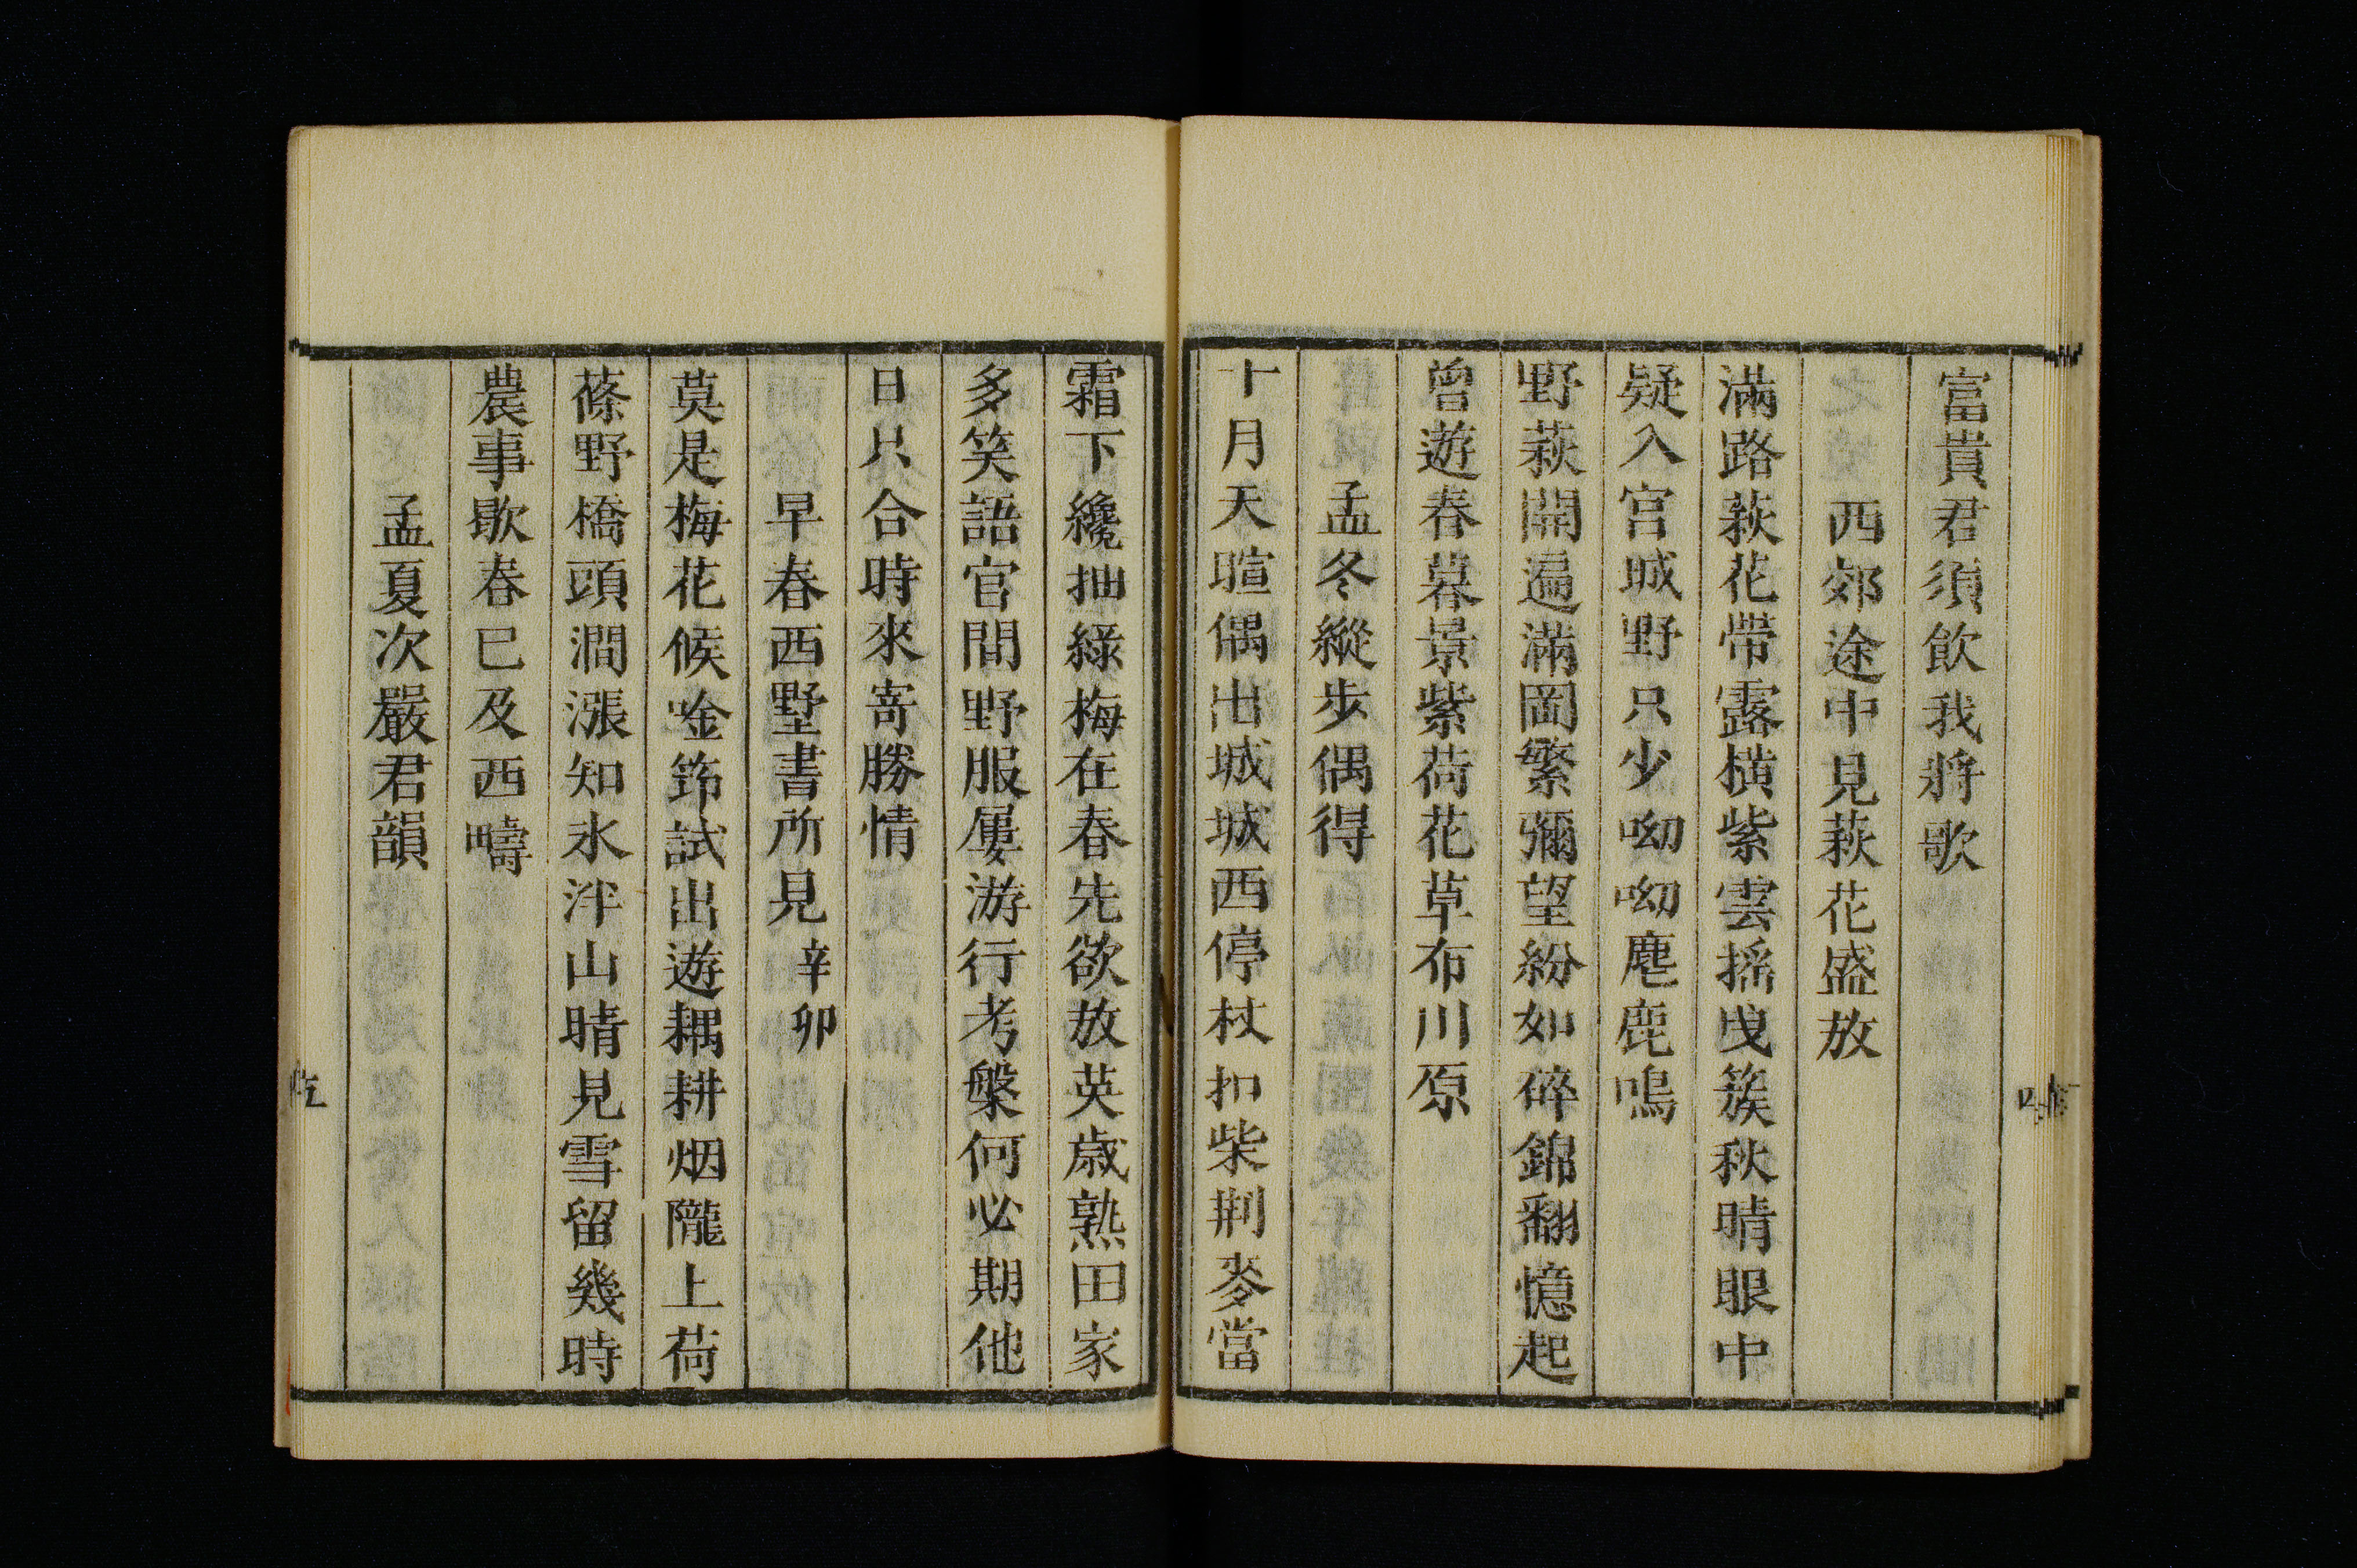 富貴君須飲我將歌
西郊途中見萩花盛放
滿路萩花帶露橫紫雲搖曳簇秋晴眼中
疑入宮城野只少呦呦麀鹿鳴
野萩開遍滿岡繁彌望紛如碎錦翻憶起
曾遊春暮景紫荷花草布川原
孟冬縱步偶得
十月天暄偶出城城西停杖扣柴荆麥當
霜下纔抽綠梅在春先欲放英歲熟田家
多笑語官閒野服屢游行考槃何必期他
日只合時來寄勝情
早春西墅書所見 辛卯
莫是梅花候唫筇試出遊耦耕烟隴上荷
蓧野橋頭澗漲知氷泮山晴見雪留幾時
農事歇春已及西疇
孟夏次嚴君韻